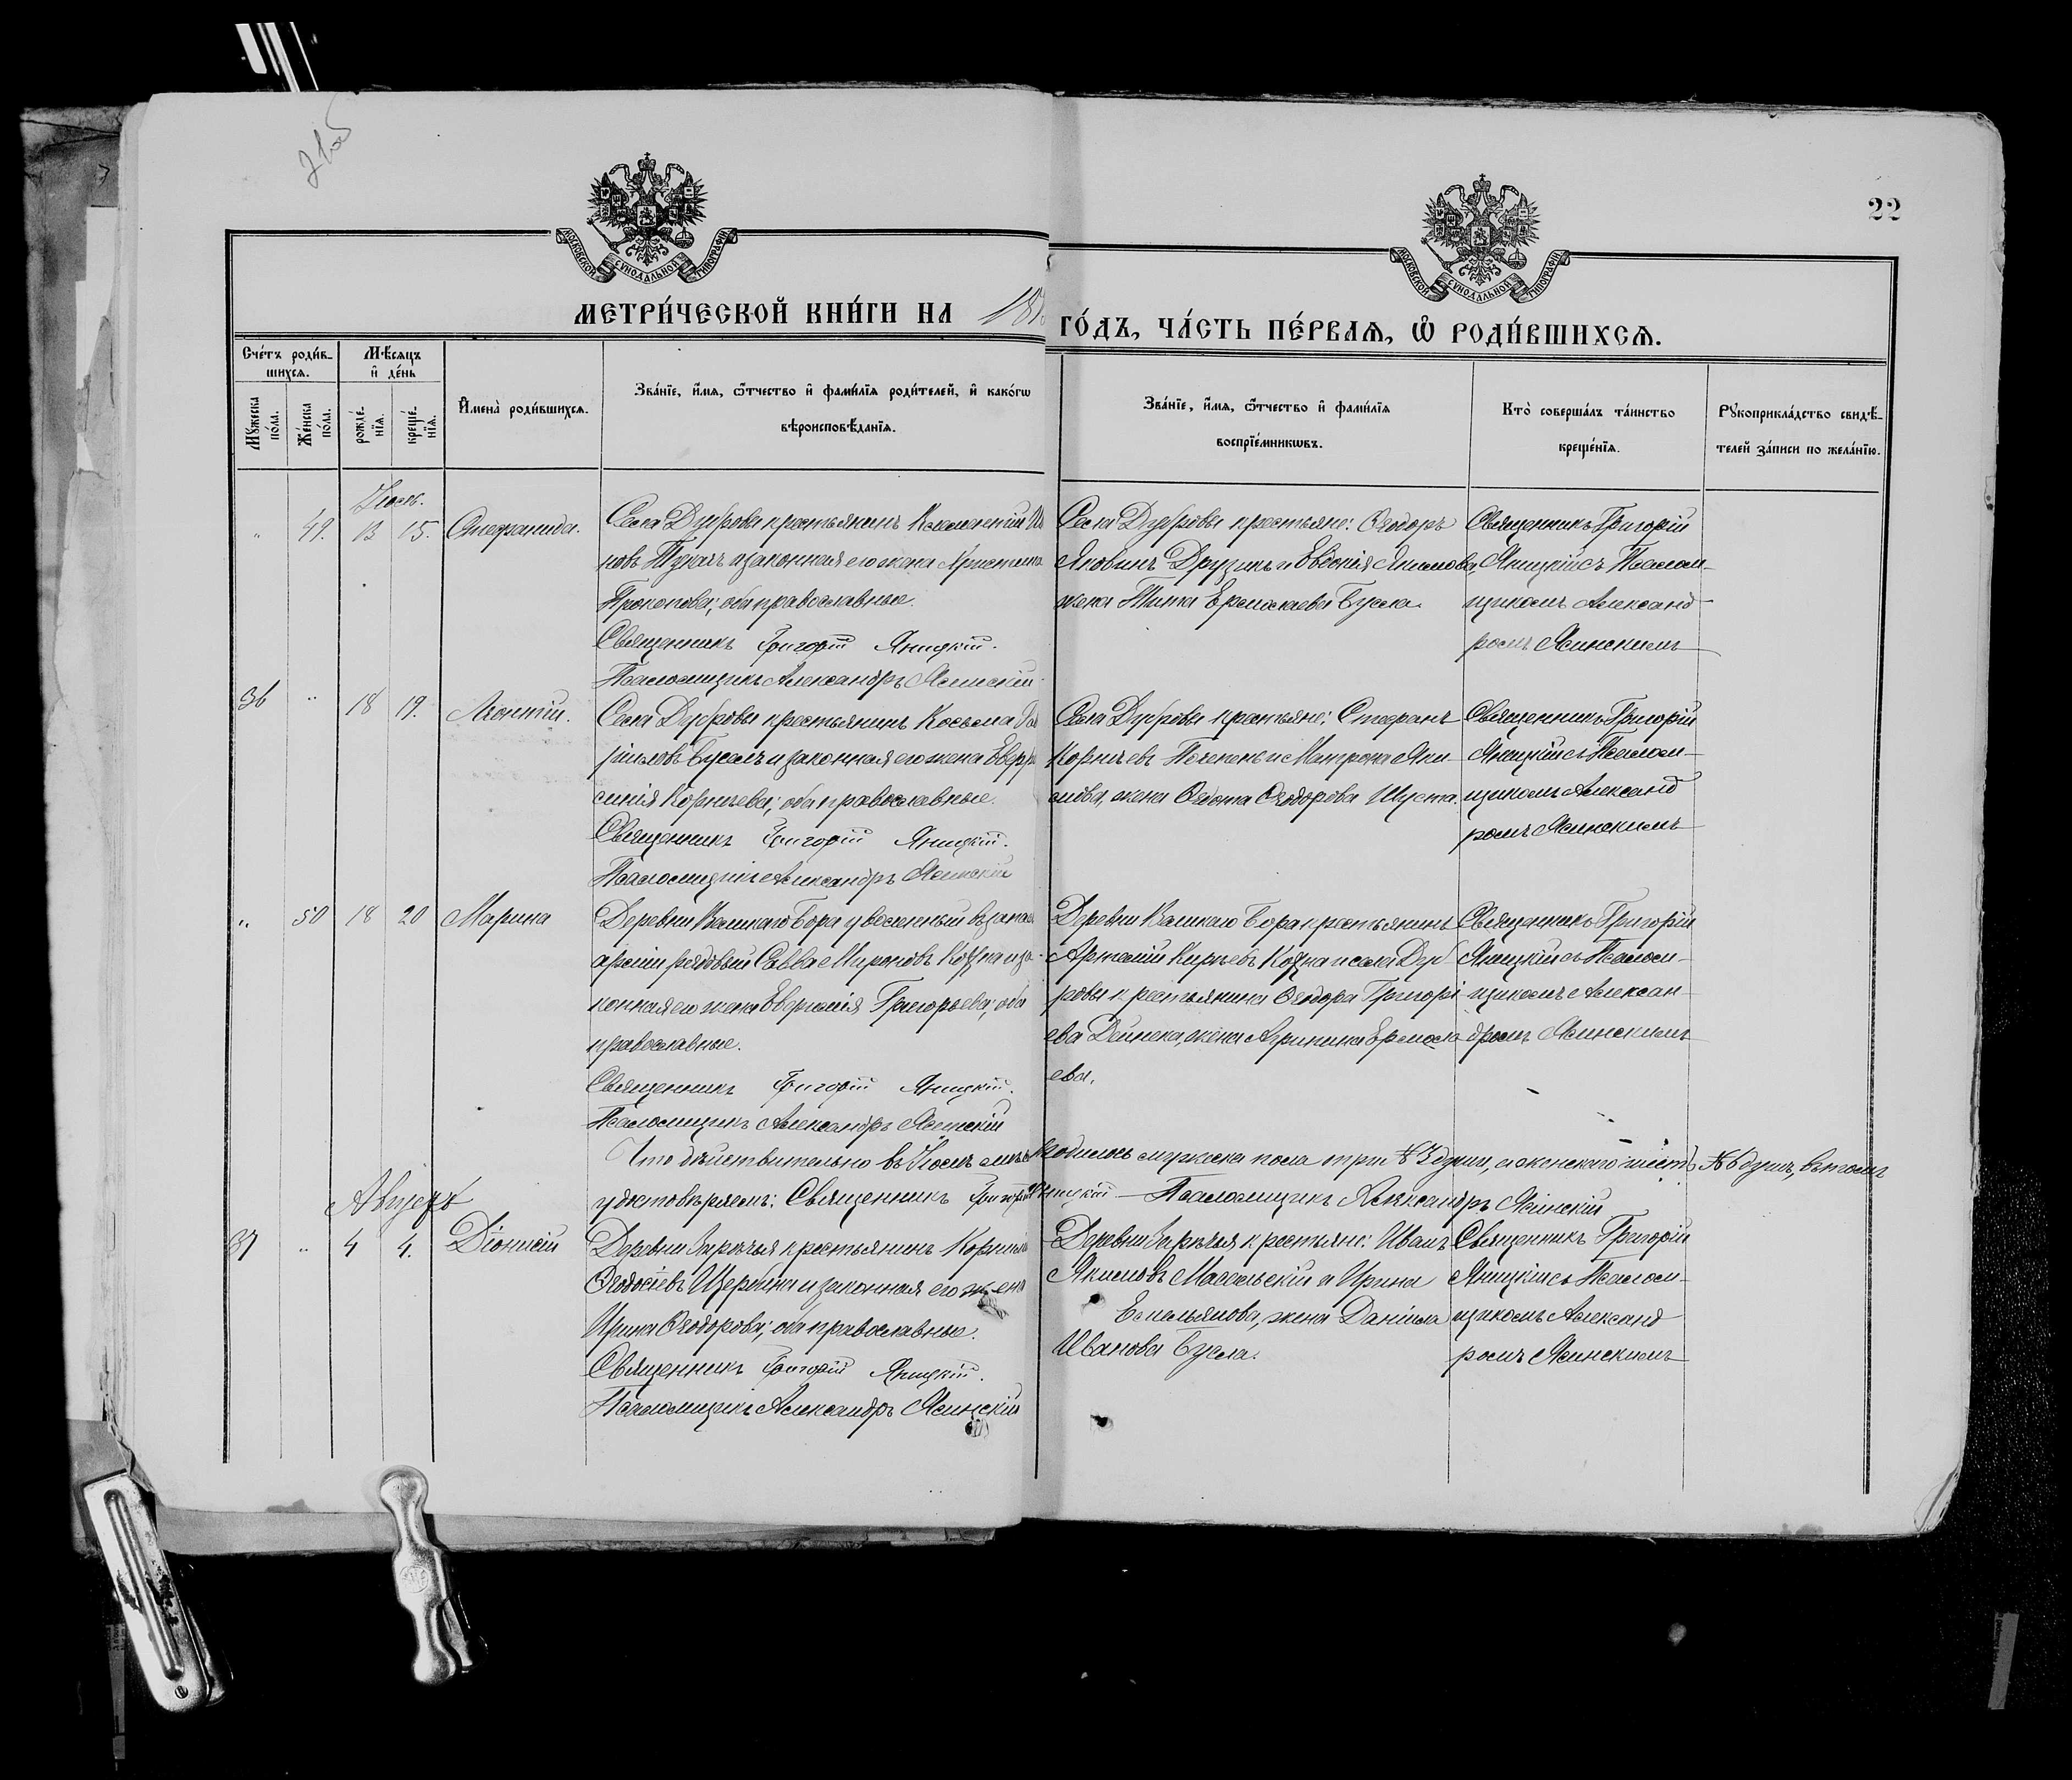 22
МОСКОВСКОЙ СѴНОДАЛЬНОЙ ТИПОГРАФІИ
МОСКОВСКОЙ СѴНОДАЛЬНОЙ ТИПОГРАФІИ
МЕТРИ́ЧЕСКОЙ КНИ́ГИ НА 18
ГО́ДЪ, ЧА́СТЬ ПЕ́РВАѦ, Ѡ҆ РОДИ́ВШИХСѦ.
Сче́тъ роди́в-
шихсѧ.
Мꙋ́жеска по́ла.
Же́нска по́ла.
Мѣ́сѧцъ
и҆ де́нь
рожде́-нїѧ.
креще́-нїѧ.
И҆мена̀ роди́вшихсѧ.
Зва́нїе, и҆́мѧ, ѻ҆́тчество и҆ фамѝлїѧ роди́телей, и҆ како́гѡ
вѣроисповѣ́данїѧ.
Зва́нїе, и҆́мѧ, ѻ҆́тчество и҆ фамѝлїѧ
воспрїе́мникѡвъ.
Кто̀ соверша́лъ та́инство
креще́нїѧ.
Рꙋкоприкла́дство свидѣ́-
телей за́писи по жела́нїю.
Іюль.
49. 13 15. Стефанида.
Села Дубровы крестьянинъ
новъ законная его жена Христина
Прокопова; оба православные.
Священникъ Григорій Яницкій.
Псаломщикъ Александръ Ясинскій
Села Дубровы крестьяне: Ѳеодоръ
Яковинъ Друзикъ и Евдокія Якимова,
жена Тита Ермолаева Бусла.
Священникъ Григорій
Яницкій съ Псалом-
щикомъ Александ-
ромъ Ясинскимъ
36 18 19. Леонтій.
Села Дубровы крестьянинъ Косьма
ріиловъ Буселъ и законная его жена Евфро
синія Корніева; оба православные.
Священникъ Григорій Яницкій.
Псаломщикъ Александръ Ясинскій
Села Дубровы крестьяне: Стефанъ
Корніевъ и Матрона Яки-
мова, жена Ѳеодорова Шуста.
Священникъ Григорій
Яницкій съ Псалом-
щикомъ Александ
ромъ Ясинскимъ
50 18 20 Марина
Деревни Бора уволенный въ запас
арміи рядовый Савва Мироновъ и за-
конная его жена Евгенія Григорьева; оба
православные.
Священникъ Григорій Яницкій.
Псаломщикъ Александръ Ясинскій
Деревни Бора крестьянинъ
Артемій Кирьевъ и села Дуб-
ровы крестьянина Ѳеодора Григорі-
ева Дейнека, жена Агрипина Ермола
ева.
Священникъ Григорій
Яницкій съ Псалом-
щикомъ Алексан-
дромъ Ясинскимъ
Что дѣйствительно въ Іюлѣ родилось мужеска пола три № 3 души, а женскаго шесть № 6 душъ, въ томъ
удостовѣряемъ: Священникъ Григорій Яницкій Псаломщикъ Александръ Ясинскій
Августъ
37 4 4. Діонисій
Деревни Зарѣчья крестьянинъ Корнилій
Ѳеодосіевъ Щербина и законная его жена
Ирина Ѳеодорова; оба православные.
Священникъ Григорій Яницкій.
Псаломщикъ Александръ Ясинскій
Деревни Зарѣчья крестьяне: Иванъ
Якимовъ и Ирина
Емельянова, жена Даніила
Иванова Бусла.
Священникъ Григорій
Яницкій съ Псалом-
щикомъ Александ
ромъ Ясинскимъ